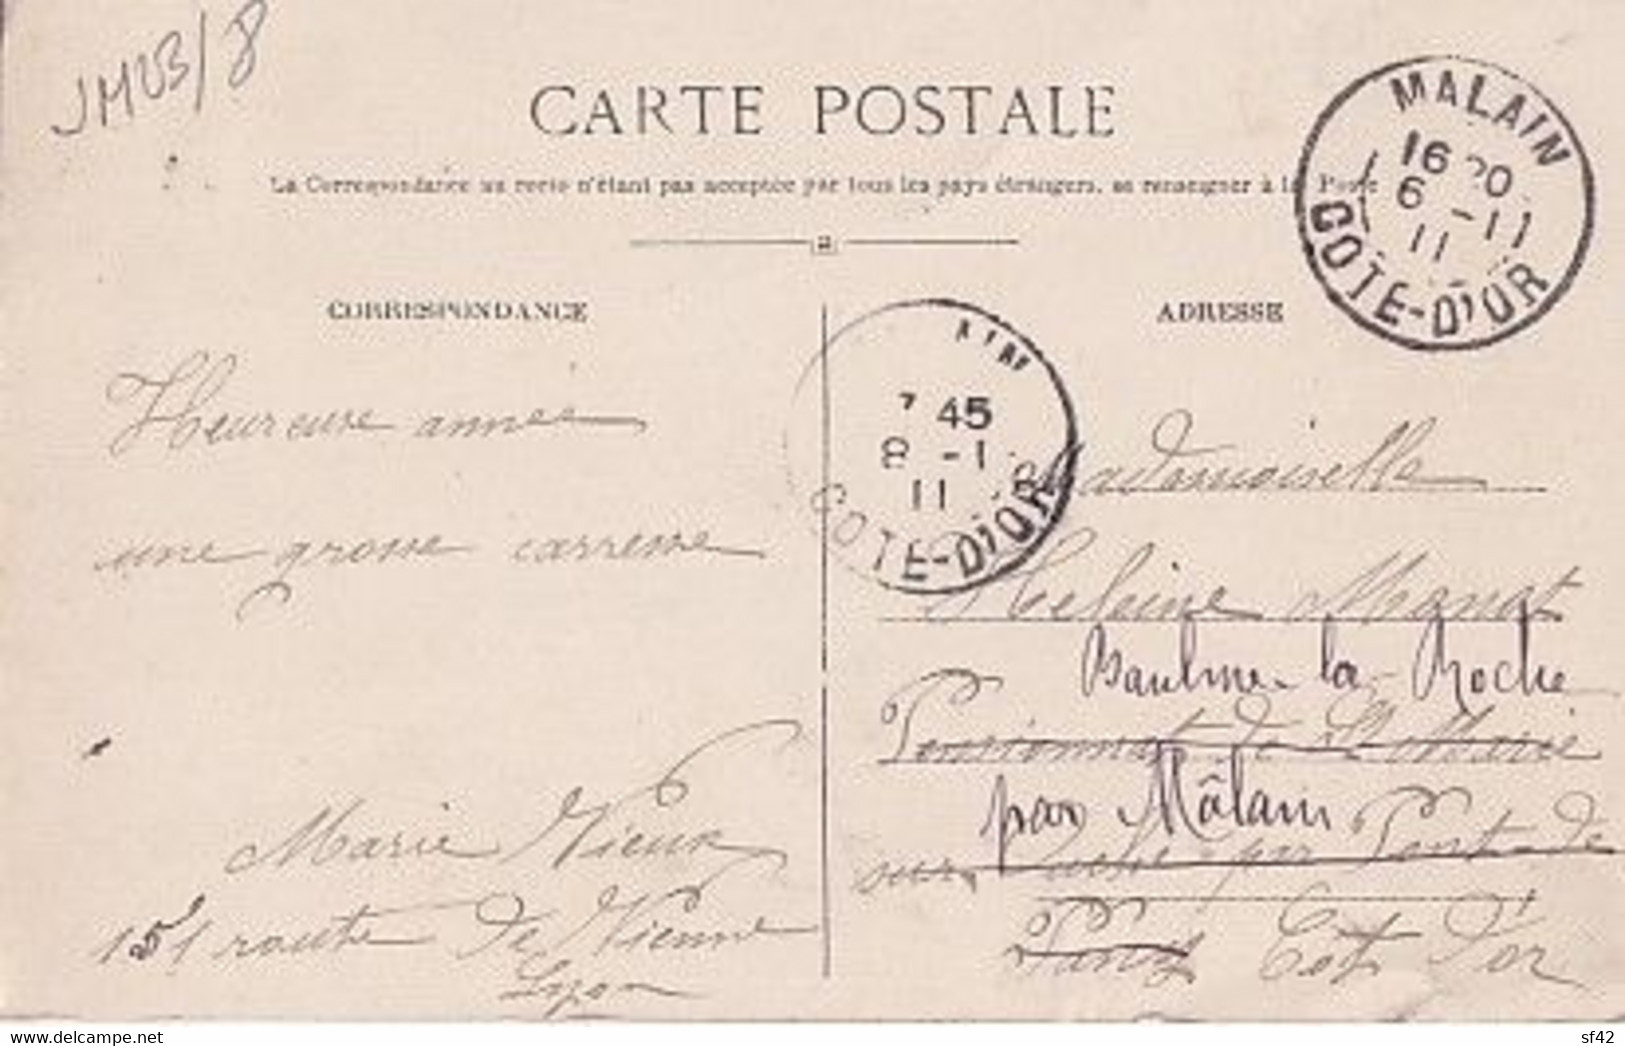 JMUB/8
CARTE POSTALE
La Correspondance au recto n'étant pas acceptée par tous les pays étrangers, se renseigner à la Poste
MALAIN
16 20
6 -11
11
COTE-D'OR
CORRESPONDANCE
ADRESSE
45
8 -1
11
COTE-D'OR
Heureuse année
une grosse carresse
Marie Vieux
151 route de Vienne
Lyon
Mademoiselle
Helaine Manat
Baulme-la-Roche
Pensionnat de Ste Marie
par Mâlain
sur par Pont-de
Pany Cot d'or
delcampe.net
sf42